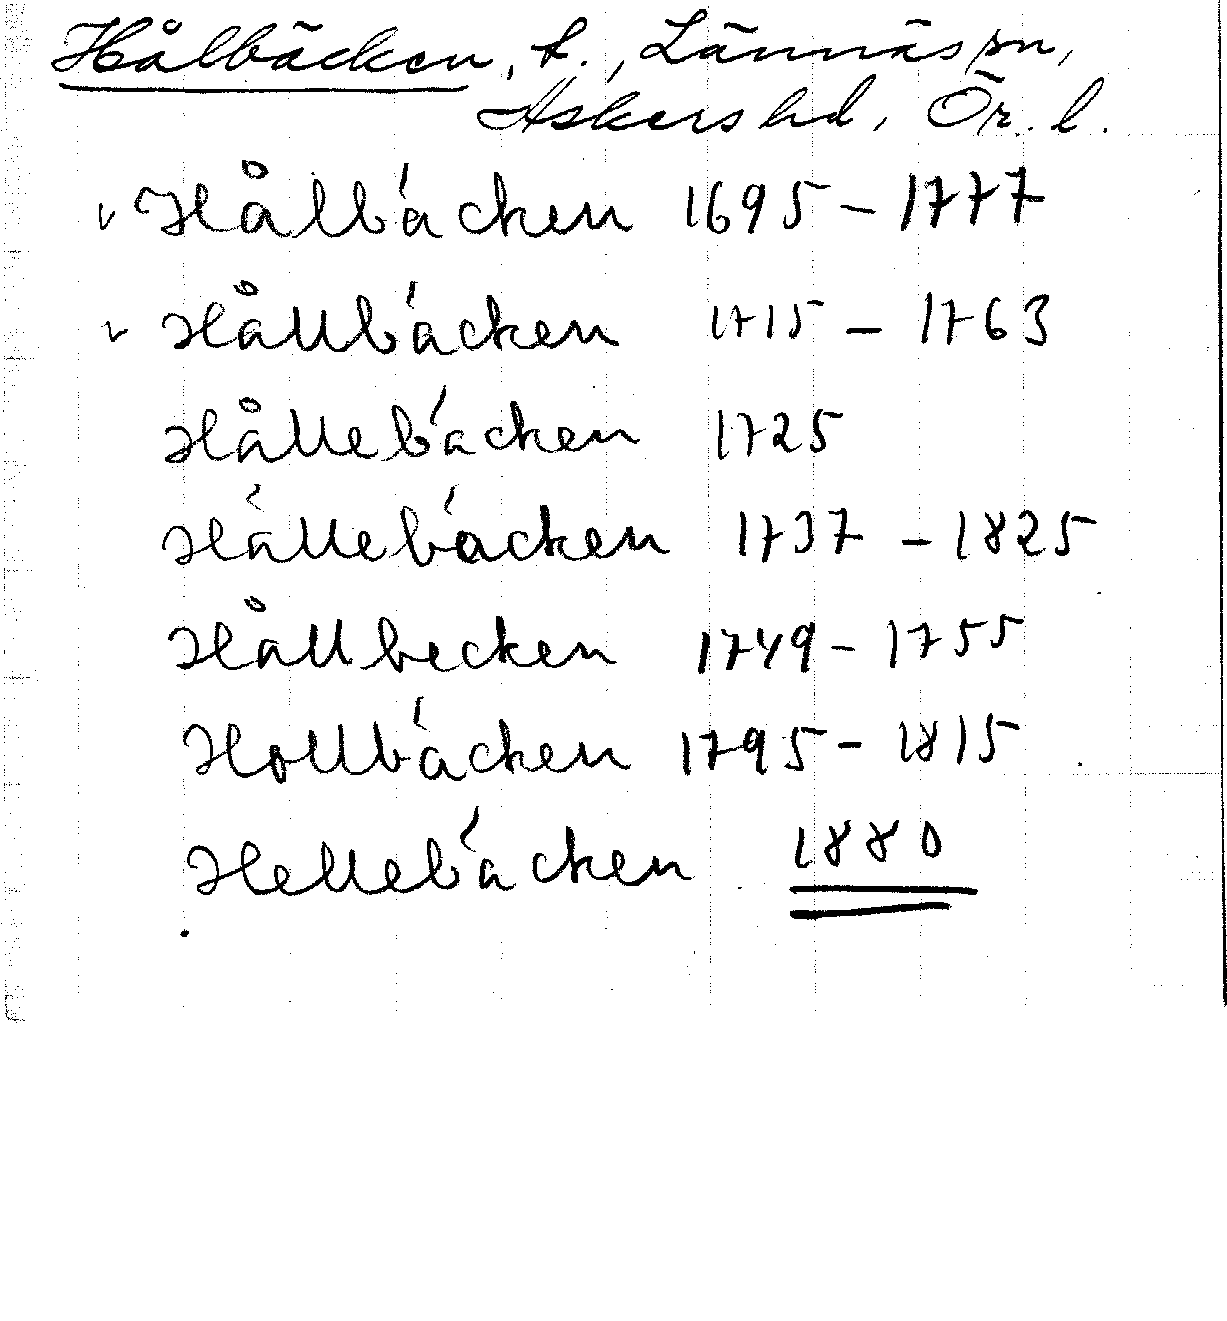 Hålbäcken, t., Lännäs sn,
Askers hd, Ör. l.
v Hålbäcken 1695 – 1777
v Hållbäcken 1715 – 1763
Hållebäcken 1725
Hällebäcken 1737 – 1825
Hållbecken 1749 – 1755
Hollbäcken 1795 – 1815
Hellebäcken 1880